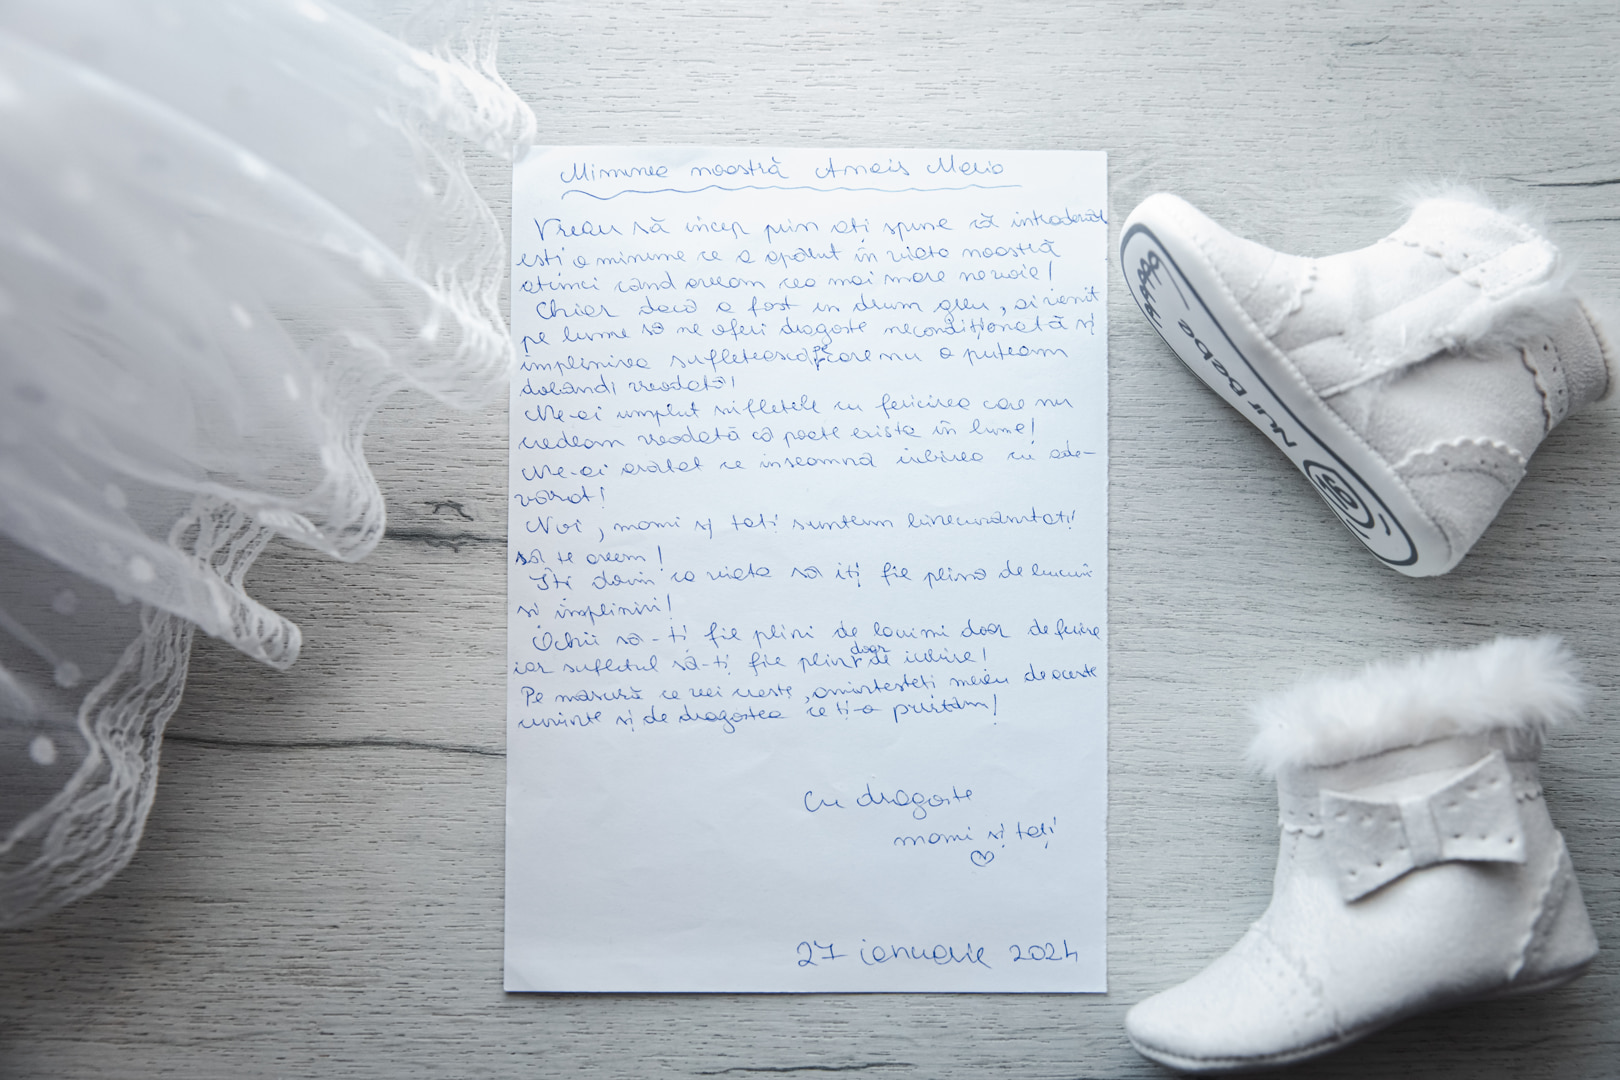 Minunea noastră Anais Maria
Vreau să încep prin ati spune că intradevăr
esti o minune ce a apărut în viata noastră
atunci cand aveam cea mai mare nevoie!
Chiar dacă a fost un drum greu, ai venit
pe lume să ne oferi dragoste necondiționată și
implinirea sufletească pe care nu o puteam
dobandi vreodată!
Ne-ai umplut sufletele cu fericirea care nu
credeam vreodată că poate exista în lume!
Ne-ai aratat ce inseamnă iubirea cu ade-
vărat!
Noi, mami și tati suntem binecuvântati
să te avem!
Iti dorim ca viata să iți fie plină de bucurii
si impliniri!
Ochii să-ti fie plini de lacrimi doar de fericire
iar sufletul să-ți fie plin doar de iubire!
Pe măsură ce vei creste, amintesteti mereu de aceste
cuvinte și de dragostea ce ți-o purtăm!
Cu dragoste
mami și tati
27 ianuarie 2024
Nurbebe